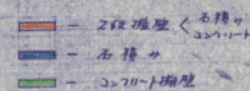 - 2段擁壁 < 石積み
コンクリート
- 石積み
- コンクリート擁壁